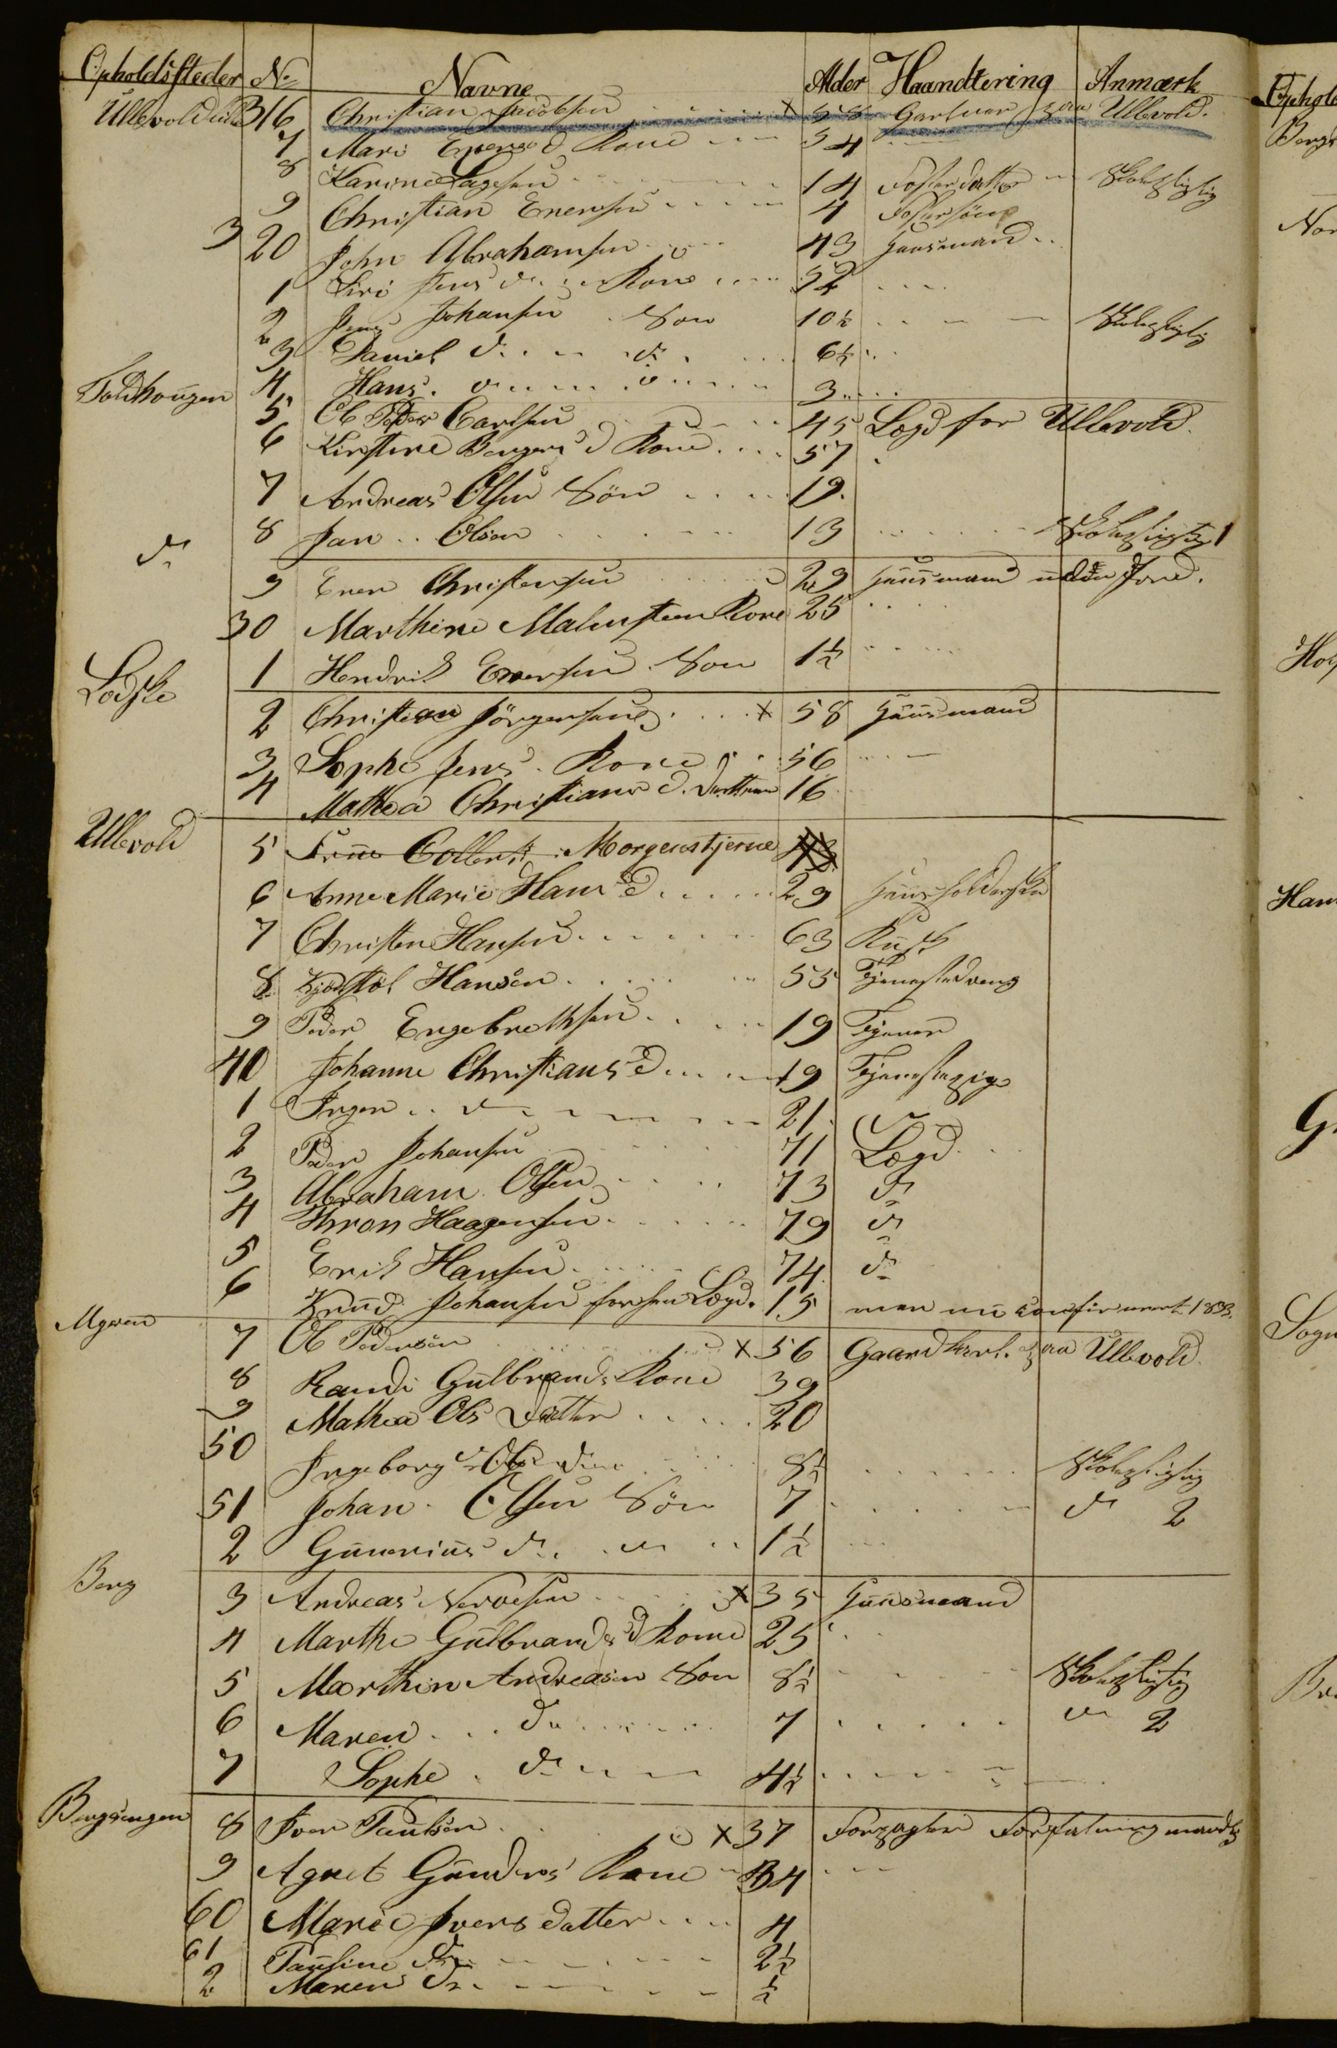 Opholdssteder No Navne Alder Haandtering Anmærk
Ullevold 316 Christian Jacobsen x 58 Gartner paa Ullevold.
7 Mari Evens d Kone 54
8 Karine 14 Fosterdatter Skolepligtig
9 Christian Evensen 4 Fostersön
320 John Abrahamsen 43 Huusmand
1 Siri Jens d. Kone 52
2 Jens Johansen Son 10½ Skolepligtig
3 Daniel d. d. 6½
4 Hans. d. 3
Foldhougen 5 Ole Peder Carlsen 45 Lægd for Ullevold.
6 Kirstine d Kone 57
7 Andreas Olsen Sön 19.
8 Jan Olsen 13 Skolepligtig 1
do 9 Even Christensen 29 Huusmand uden Jord.
30 Marthine Malmsteen Kone 25
1 Hendrik Evensen Son 1½
2 Christian Jörgensen x 58 Huusmand
3 Sophe Jens Kone 56
4 Mathea Christians d. Datter 16
Ullevold 5 Frue Collett Morgenstjerne
6 Anne Marie Hans d 29 Huusholderske
7 Christen Hansen 63 Kusk
8 Kjöstöl Hansen 55 Tjenestedreng
9 Peder Engebrethsen 19 Tjener
40 Johanne Christians d 19 Tjenestepige
1 Inger d 21 d
2 Peder Johansen 71 Lægd
3 Abraham Olsen 73 do
4 Thron Haagensen 79 do
5 Erik Hansen 74 do
6 Knud Johansen forhen Lægd. 15 men nu confirmert 1833.
7 Ole Pedersen x 56 Gaardskarl paa Ullevold.
8 Randi Gulbrands Kone 39
9 Mathea Ols Datter 20
50 Ingeborg Ols 8½ Skolepligtig
51 Johan Olsen Sön 7 do 2
2 Gunerius do do 1½
Berg 3 Andreas x 35 Huusmand
4 Marthe Gulbrands d Kone 25
5 Marthin Andreasen Son 8½ Skolepligtig
6 Maren do 7 do 2
7 Sophe do 4½
Bergsengen 8 Iver Paulsen x 37 Forpagter
9 Agnet Gunders Kone 34
60 Marie Ivers datter 4
61 Pauline do 2½
2 Maren do ½